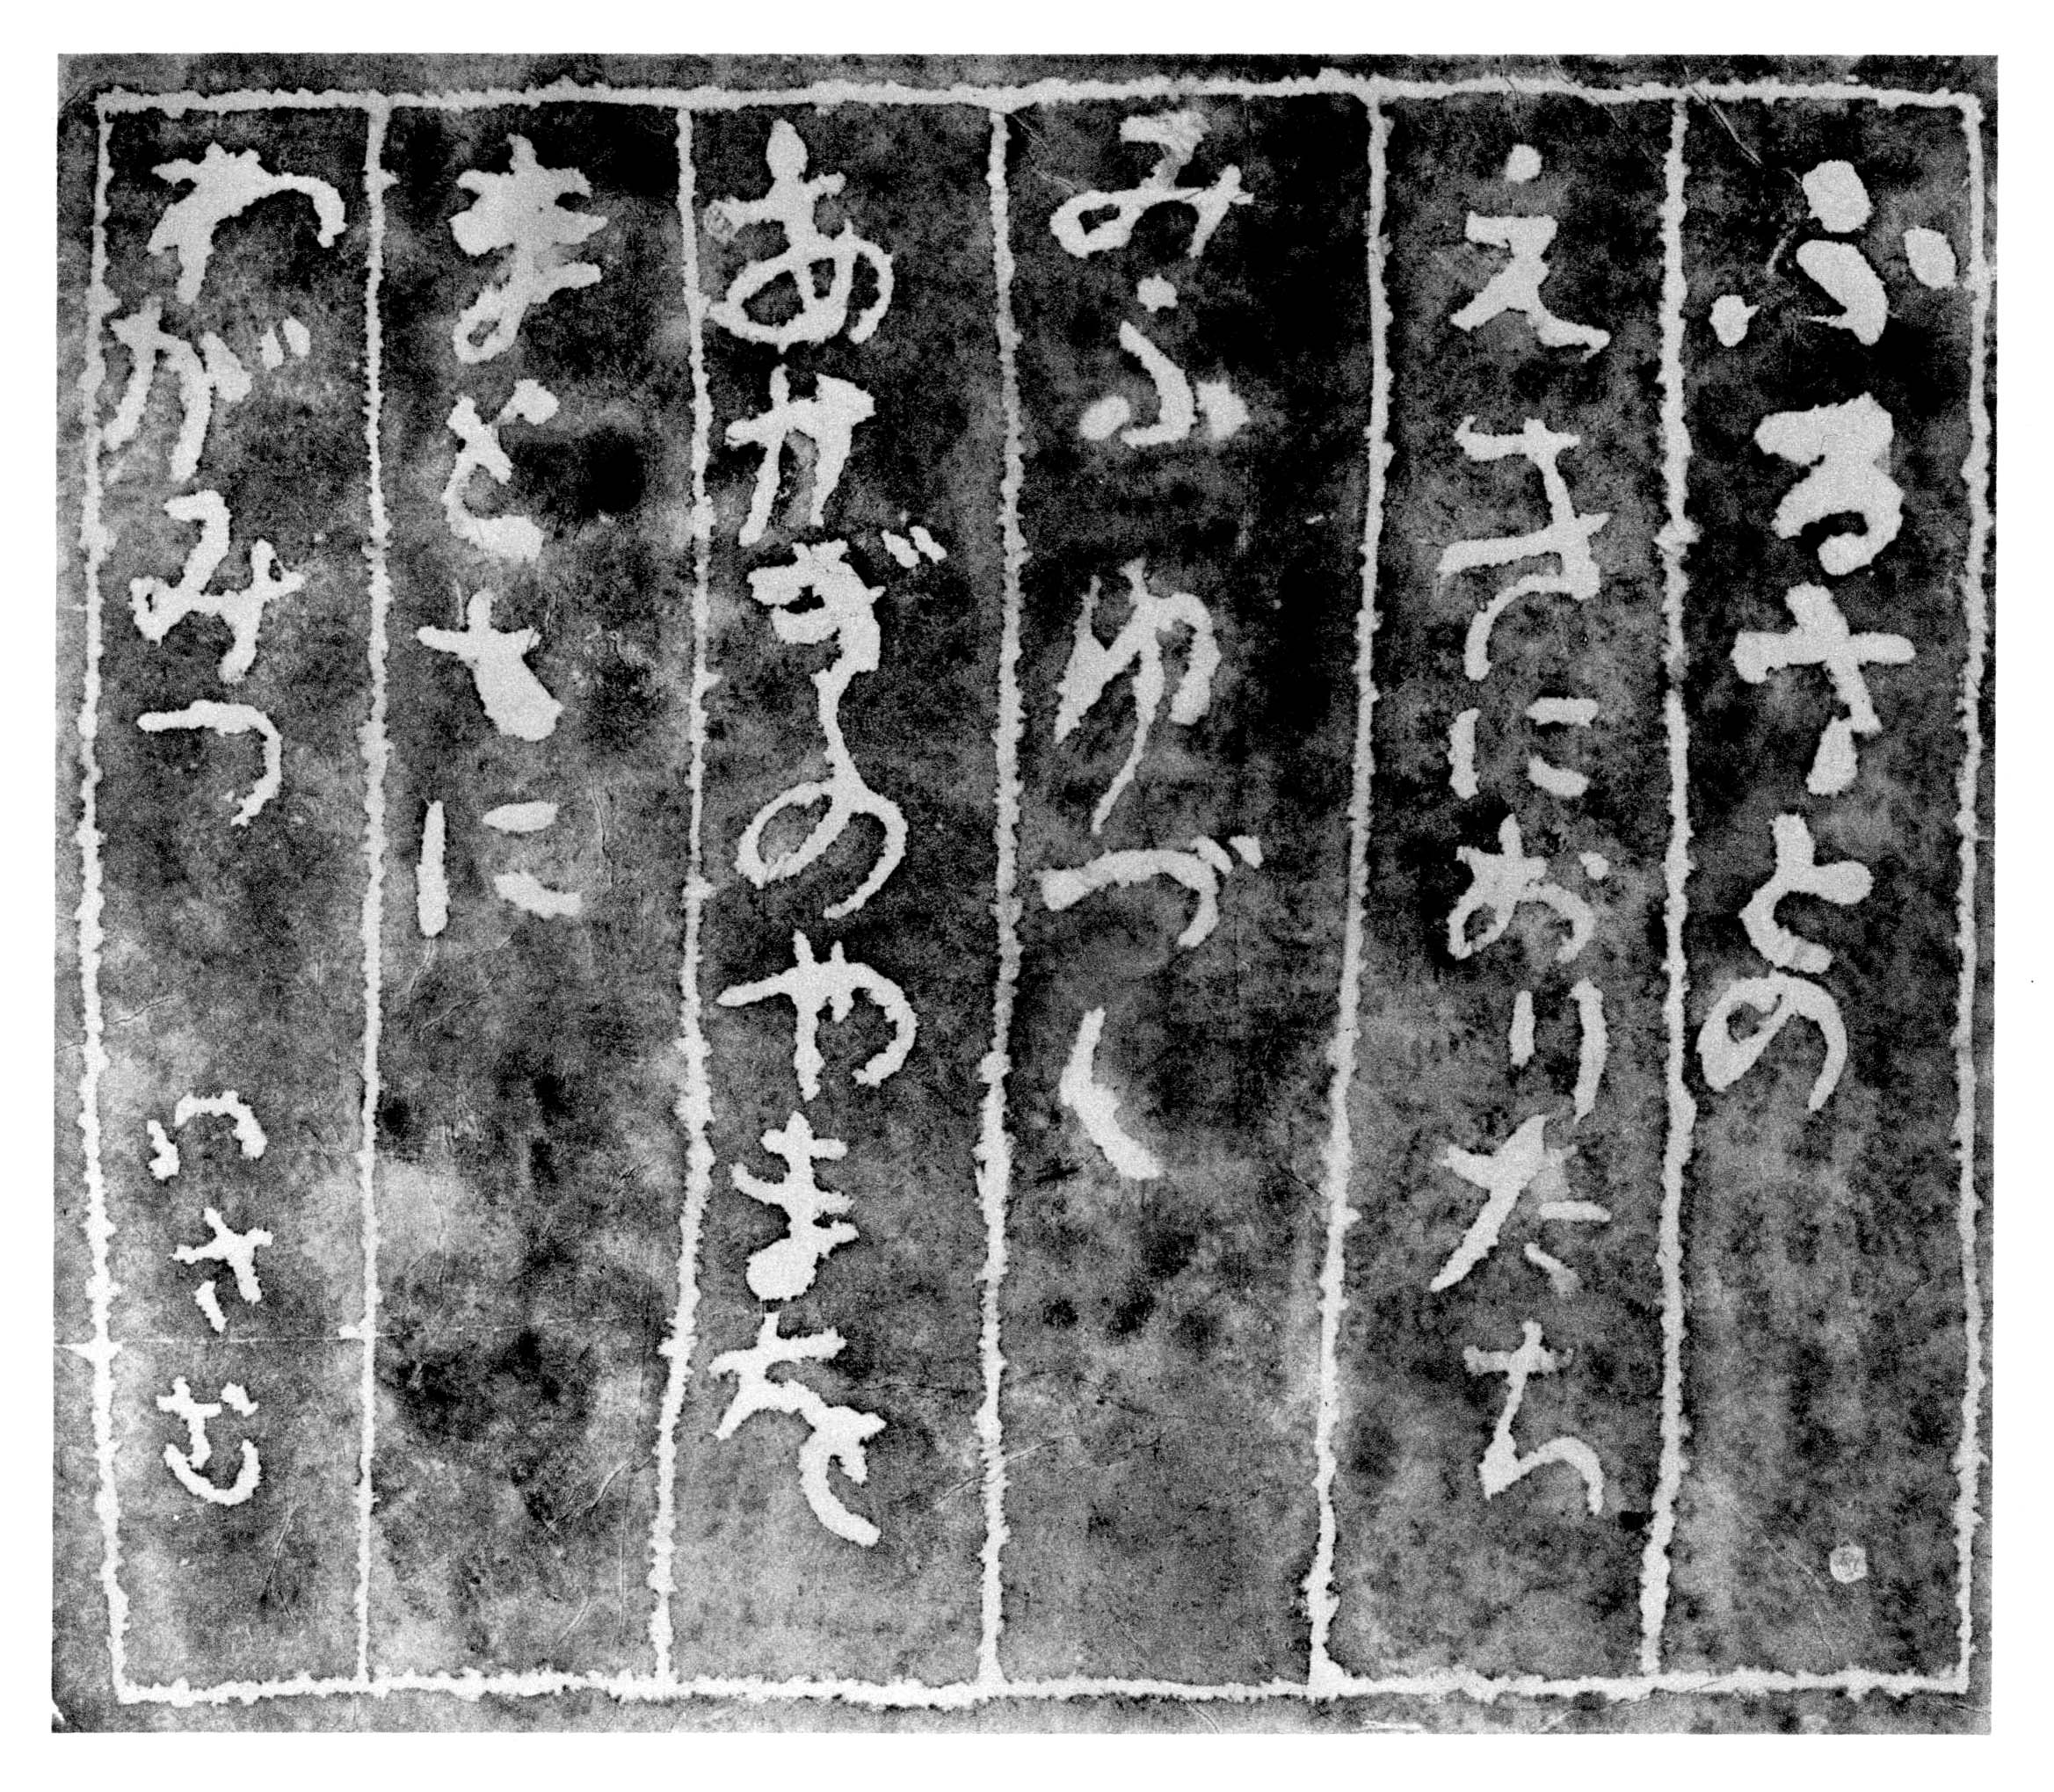 ふるさとの
えきにおりたち
みふゆづく
あかぎのやまを
まともに
わがみつ　いさむ